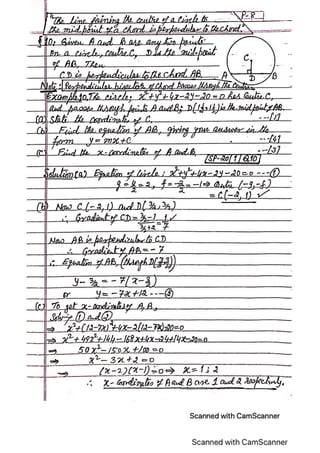 P-8
The Line joining the centre of a circle to
the mid point of a chord is perpendicular to the chord.
§10: Given A and B are any two points
on a circle, centre C, D is the mid point
of AB, Then
CD is perpendicular to the chord AB.
C
A D B
Note: Perpendicular bisector of chord passes through the centre
Example 10. The circle; x²+y²+4x-2y-20=0 has centre C,
and passes through points A and B; D(1½, 1½) is the mid point of AB.
(a) State the coordinates of C, ---[1]
(b) Find the equation of AB, giving your answer in the
form y=mx+c ---[4]
(c) Find the x-coordinates of A and B. ---[3]
Solution (a) Equation of circle: x²+y²+4x-2y-20=0 ---①
g=4/2=2, f=-2/2=-1 ⇒ centre (-g,-f)
=C(-2,1)
(b) Now C(-2,1) and D(3/2, 3/2)
∴ Gradient of CD = (3/2-1)/(3/2+2) = 1/7
Now AB is perpendicular to CD
∴ Gradient of AB = -7
∴ Equation of AB, (through D(3/2, 3/2))
y-3/2=-7(x-3/2)
or y=-7x+12 ---②
(c) To get x-coordinates of A, B,
Solving ① and ②
⇒ x²+(12-7x)²+4x-2(12-7x)-20=0
⇒ x²+49x²+144-168x+4x-24+14x-20=0
⇒ 50x²-150x+100=0
⇒ x²-3x+2=0
⇒ (x-2)(x-1)=0 ⇒ x=1; 2
∴ x-coordinates of A and B are 1 and 2 respectively.
Scanned with CamScanner
Scanned with CamScanner